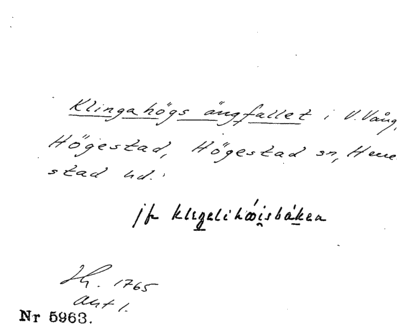 Klingahögs ängfallet i V. Vång,
Högestad, Högestad sn, Herre
stad hd.
jfr
Sk. 1765
akt 1.
Nr 5963.